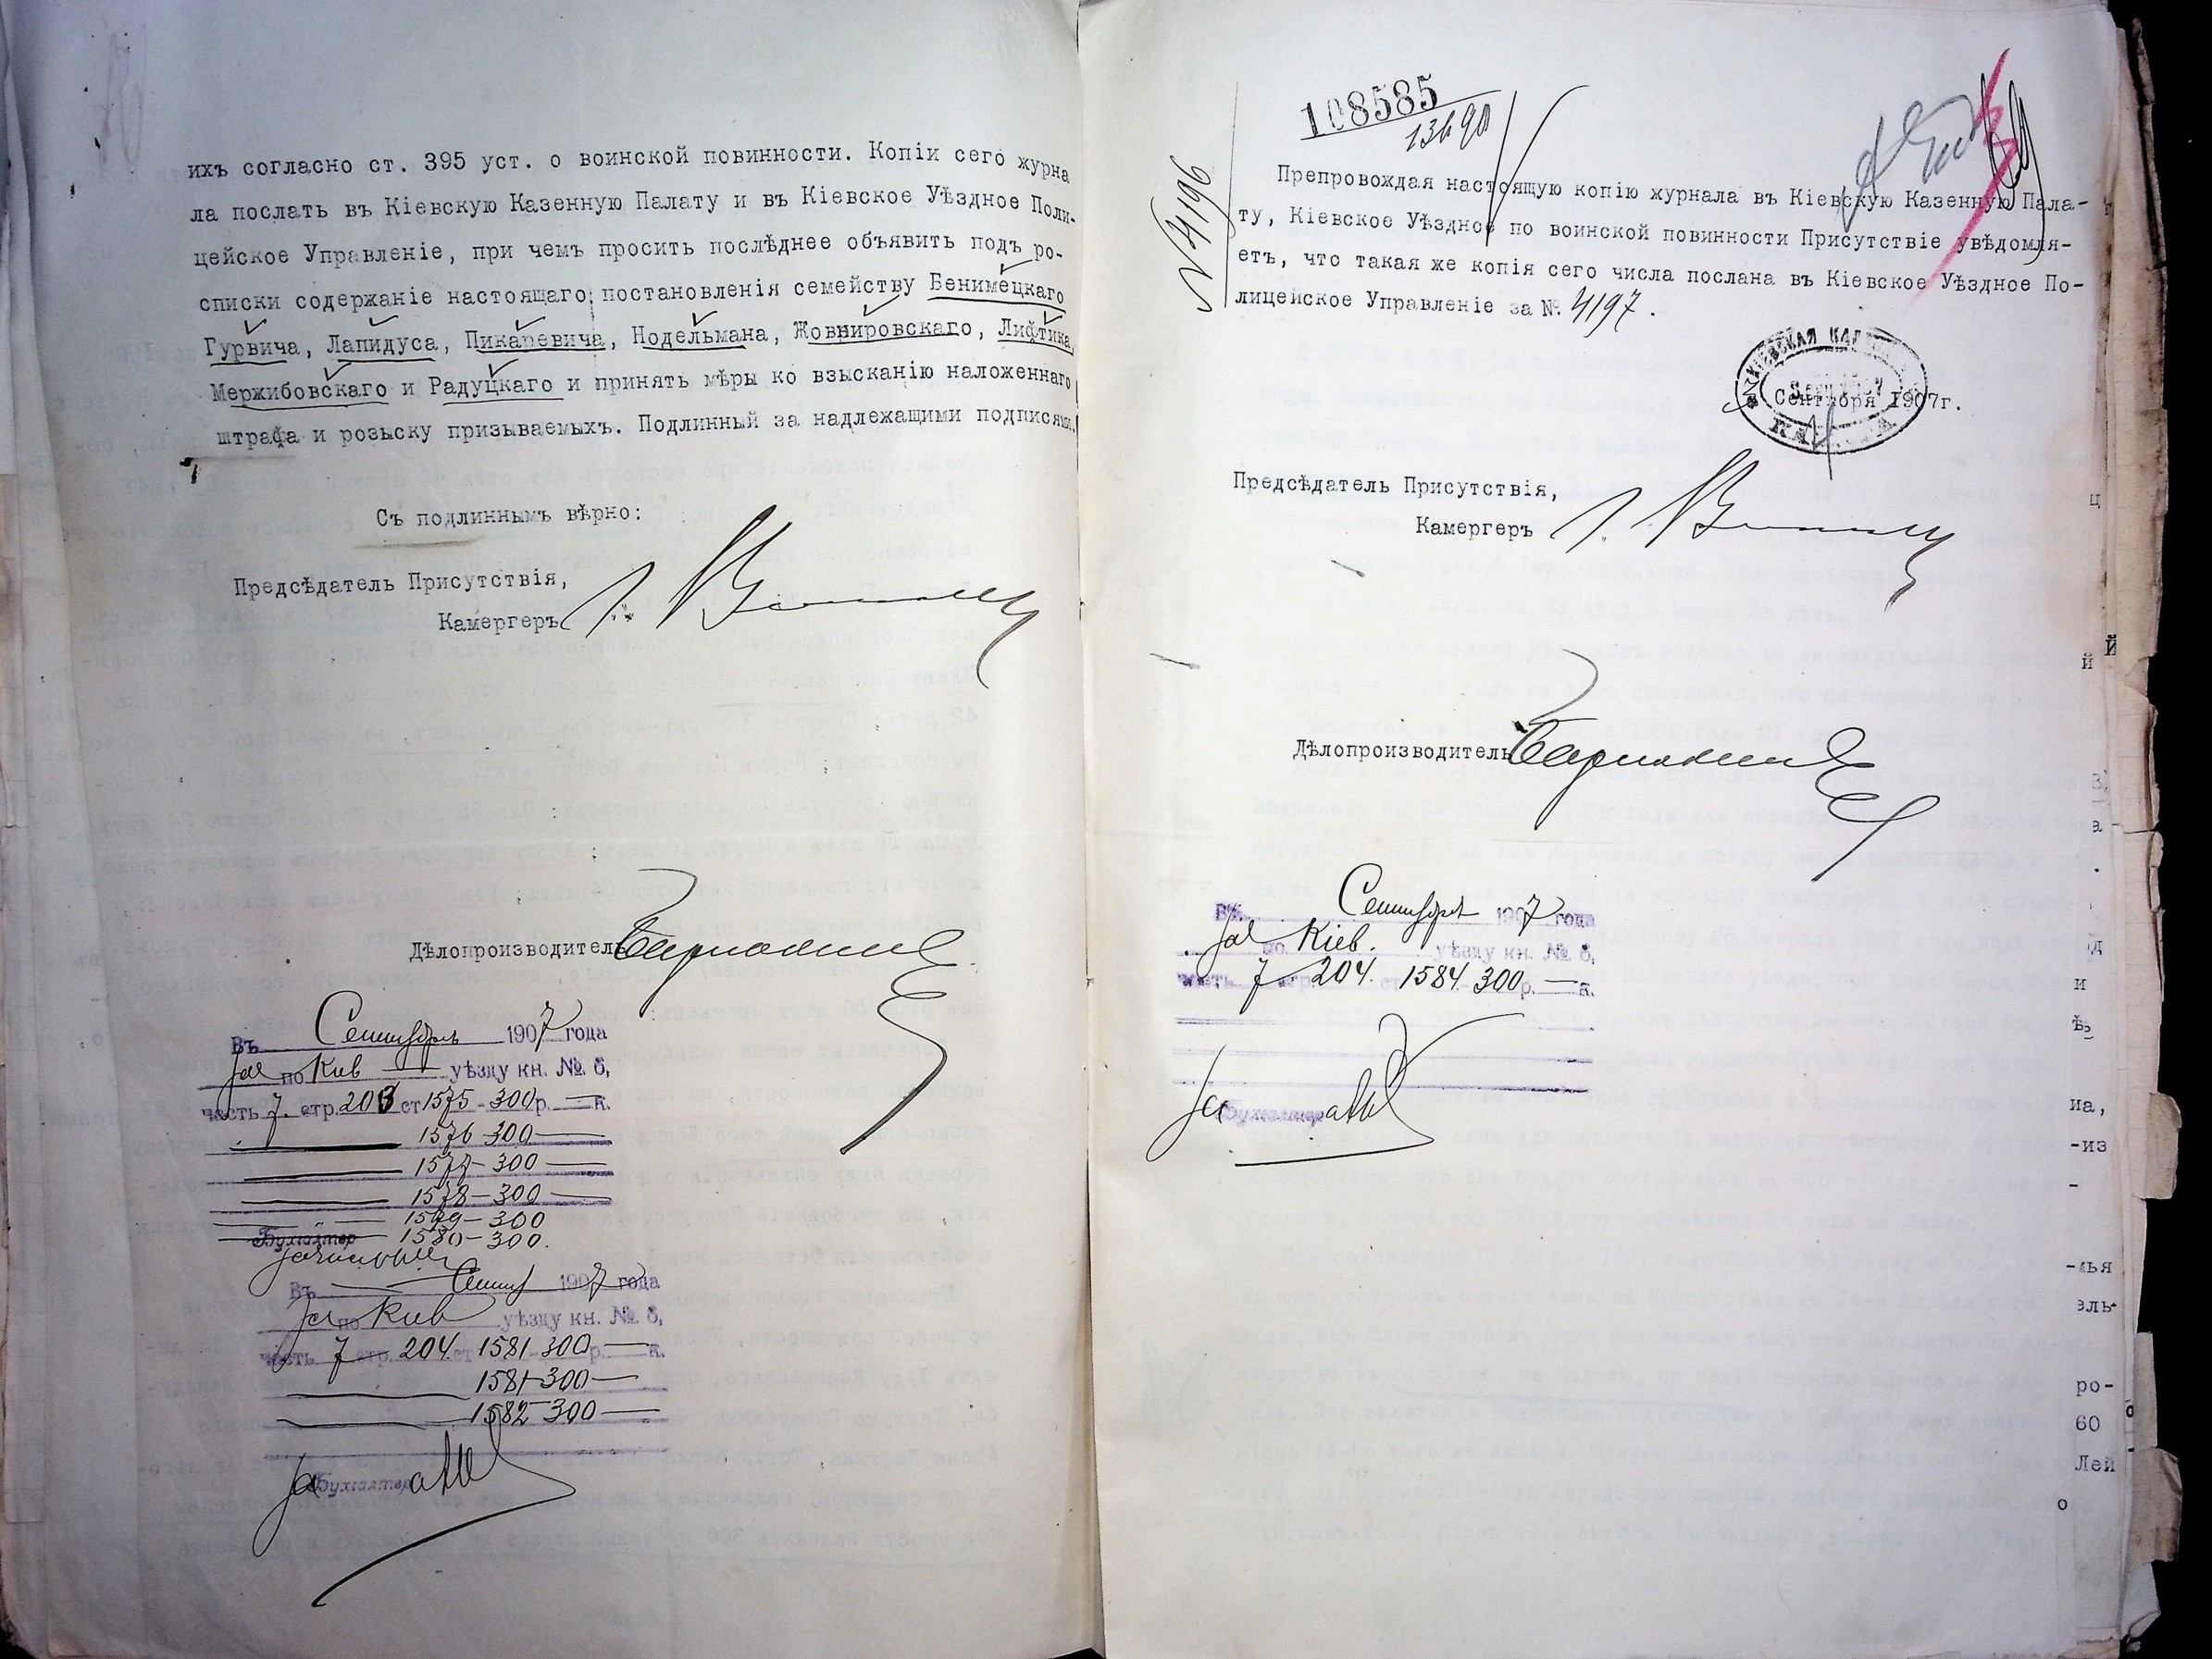 ихъ согласно ст. 395 уст. о воинской повинности. Копіи сего журна
ла послать въ Кіевскую Казенную Палату и въ Кіевское Уѣздное Поли-
цейское Управленіе, при чемъ просить послѣднее объявить подъ ро-
списки содержаніе настоящаго постановленія семейству Бенимецкаго
Гурвича, Лапидуса, Пикаревича, Нодельмана, Жовнировскаго, Лифтика,
Мержибовскаго и Радуцкаго и принять мѣры ко взысканію наложеннаго
штрафа и розыску призываемыхъ. Подлинный за надлежащими подписями.
Съ подлиннымъ вѣрно:
Предсѣдатель Присутствія,
Камергеръ
Дѣлопроизводитель
Въ Сентябрѣ 1907 года
по Кіев уѣзду кн. № 6,
часть 7. стр. 203 ст 1575 - 300 р. — к.
1576 - 300 —
1577 - 300 —
1578 - 300 —
1579 - 300
1580 - 300.
Бухгалтер
Въ Сент 1907 года
по Кіев уѣзду кн. № 6,
часть 7 стр. 204 ст 1581 - 300 р. — к.
1581 - 300 —
1582 - 300 —
Бухгалтер
108585
№ 4196
Препровождая настоящую копію журнала въ Кіевскую Казенную Пала-
ту, Кіевское Уѣздное по воинской повинности Присутствіе увѣдомля-
етъ, что такая же копія сего числа послана въ Кіевское Уѣздное По-
лицейское Управленіе за № 4197.
Сентября 1907г.
Предсѣдатель Присутствія,
Камергеръ
Дѣлопроизводитель
Въ Сентябрѣ 1907 года
по Кіев. уѣзду кн. № 6,
часть 7 стр. 204. 1584 - 300 р. — к.
Бухгалтер